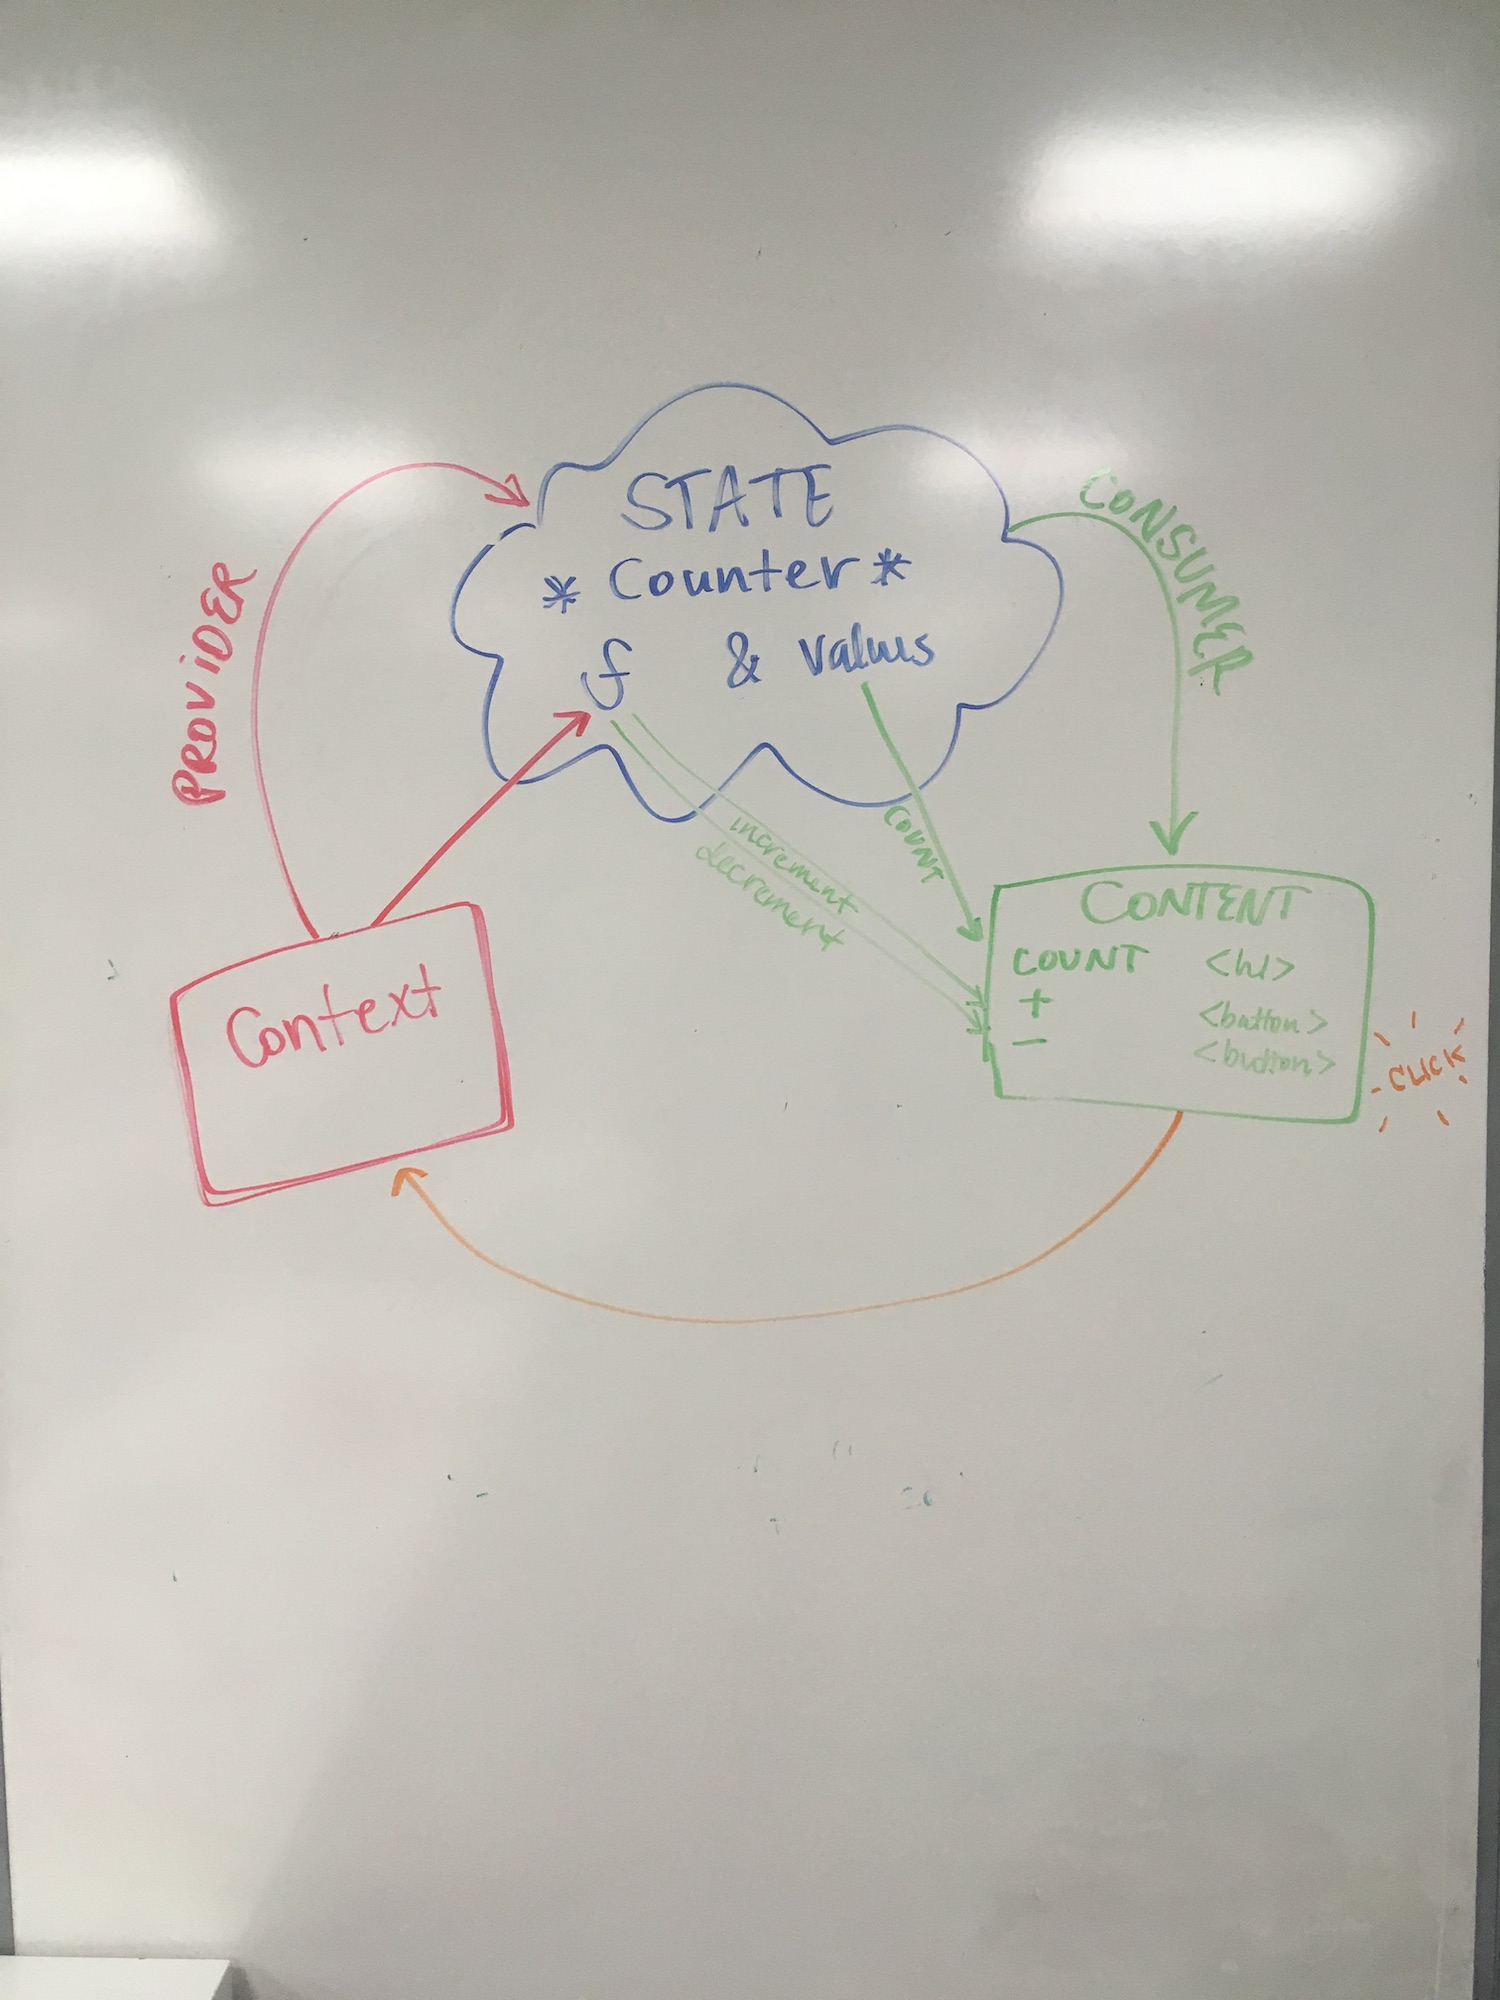 STATE
* Counter *
f & values
PROVIDER
CONSUMER
COUNT
increment
decrement
Context
CONTENT
COUNT <h1>
+ <button>
- <button>
CLICK